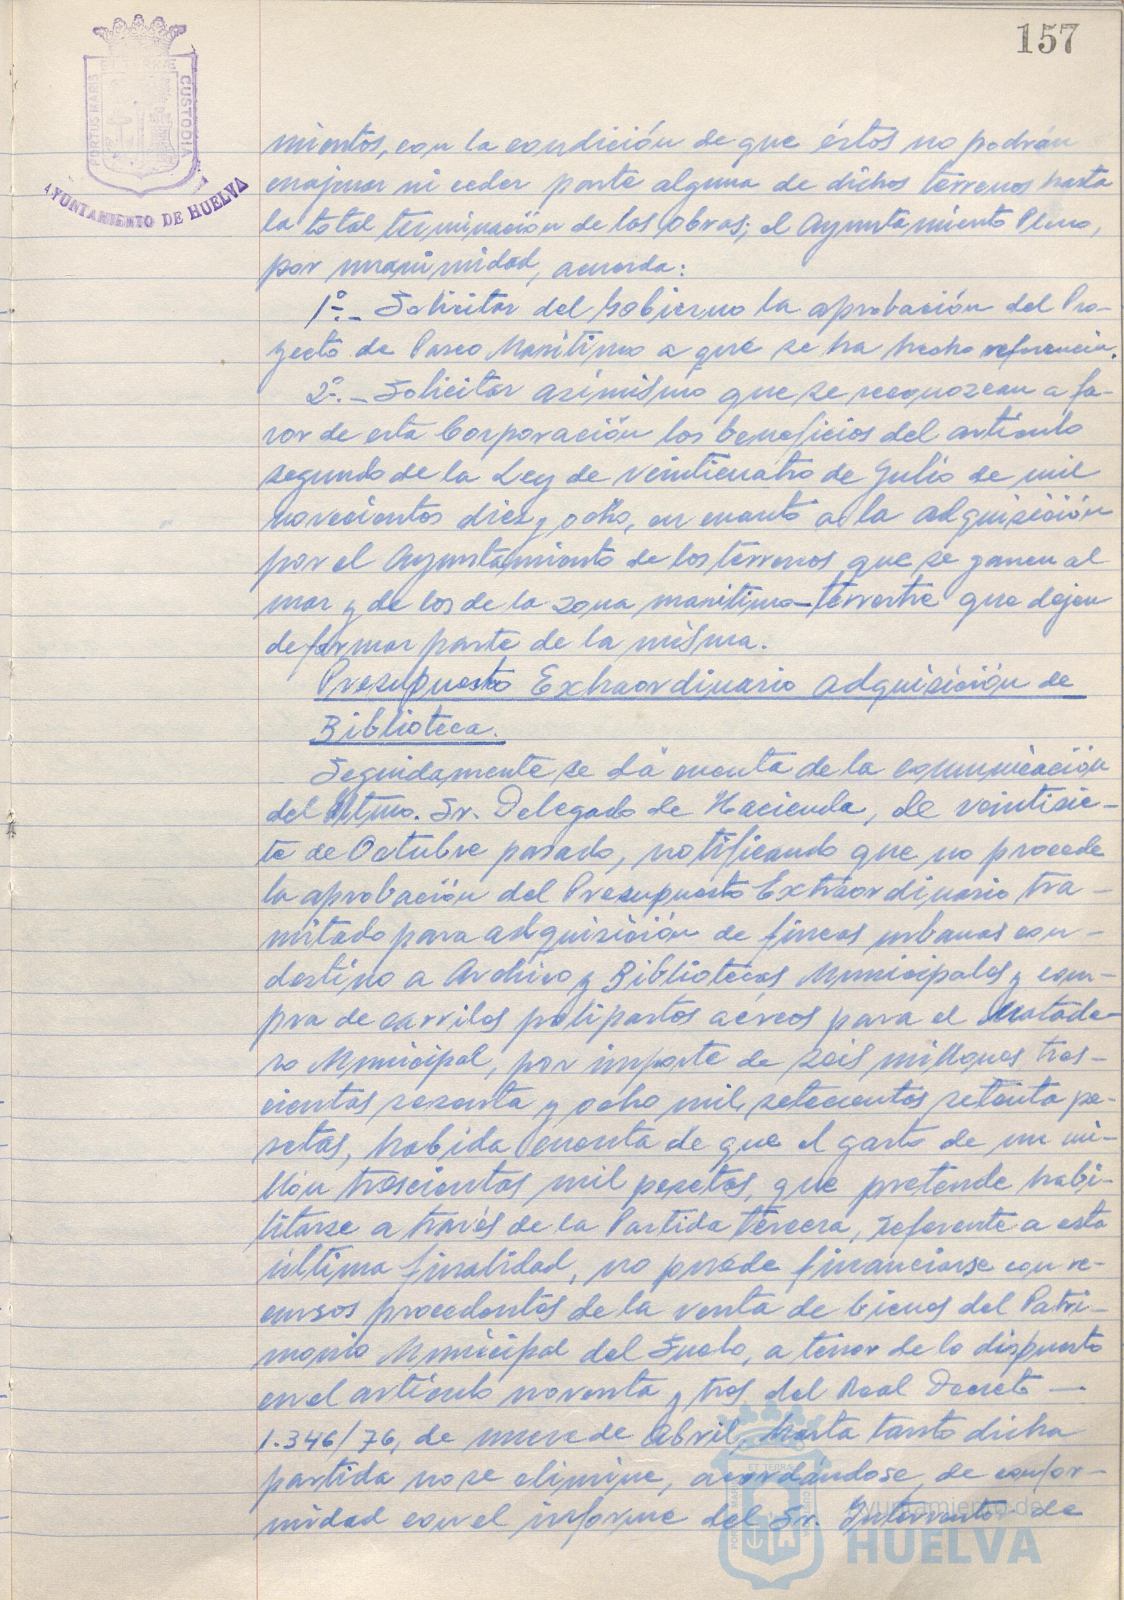 157
PORTUS MARIS ET TERRAE CUSTODIA
AYUNTAMIENTO DE HUELVA
mientos, con la condición de que éstos no podrán
enajenar ni ceder parte alguna de dichos terrenos hasta
la total terminación de las obras; el Ayuntamiento Pleno,
por unanimidad, acuerda:
1º.- Solicitar del Gobierno la aprobación del Pro-
yecto de Paseo Marítimo a que se ha hecho referencia.
2º.- Solicitar asimismo que se reconozcan a fa-
vor de esta Corporación los beneficios del artículo
segundo de la Ley de veinticuatro de Julio de mil
novecientos diez y ocho, en cuanto a la adquisición
por el Ayuntamiento de los terrenos que se ganen al
mar y de los de la zona marítimo-terrestre que dejen
de formar parte de la misma.
Presupuesto Extraordinario adquisición de
Biblioteca.
Seguidamente se dá cuenta de la comunicación
del Iltmo. Sr. Delegado de Hacienda, de veintisie-
te de Octubre pasado, notificando que no procede
la aprobación del Presupuesto Extraordinario tra-
mitado para adquisición de fincas urbanas con-
destino a Archivo y Bibliotecas Municipales y com-
pra de carriles polipastos aéreos para el Matade-
ro Municipal, por importe de seis millones tres-
cientas sesenta y ocho mil setecientas setenta pe-
setas, habida cuenta de que el gasto de un mi-
llón trescientas mil pesetas, que pretende habi-
litarse a través de la Partida tercera, referente a esta
última finalidad, no puede financiarse con re-
cursos procedentes de la venta de bienes del Patri-
monio Municipal del Suelo, a tenor de lo dispuesto
en el artículo noventa y tres del Real Decreto-
1.346/76, de nueve de Abril, hasta tanto dicha
partida no se elimine, acordándose, de confor-
midad con el informe del Sr. Interventor de
Ayuntamiento de
HUELVA